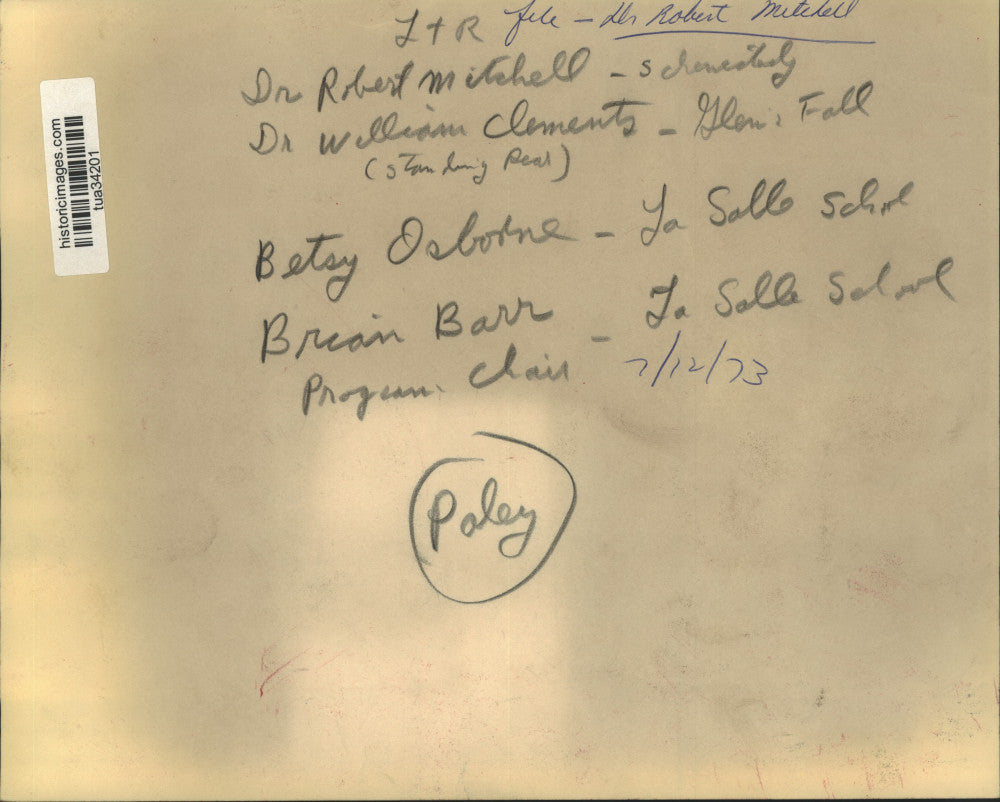 L + R file - Dr Robert Mitchell
Dr Robert Mitchell - Schenectady
Dr William Clements - Glens Fall
(standing Rear)
Betsy Osborne - La Salle School
Brian Barr - La Salle School
Program Chair 7/12/73
Paley
historicimages.com
tua34201